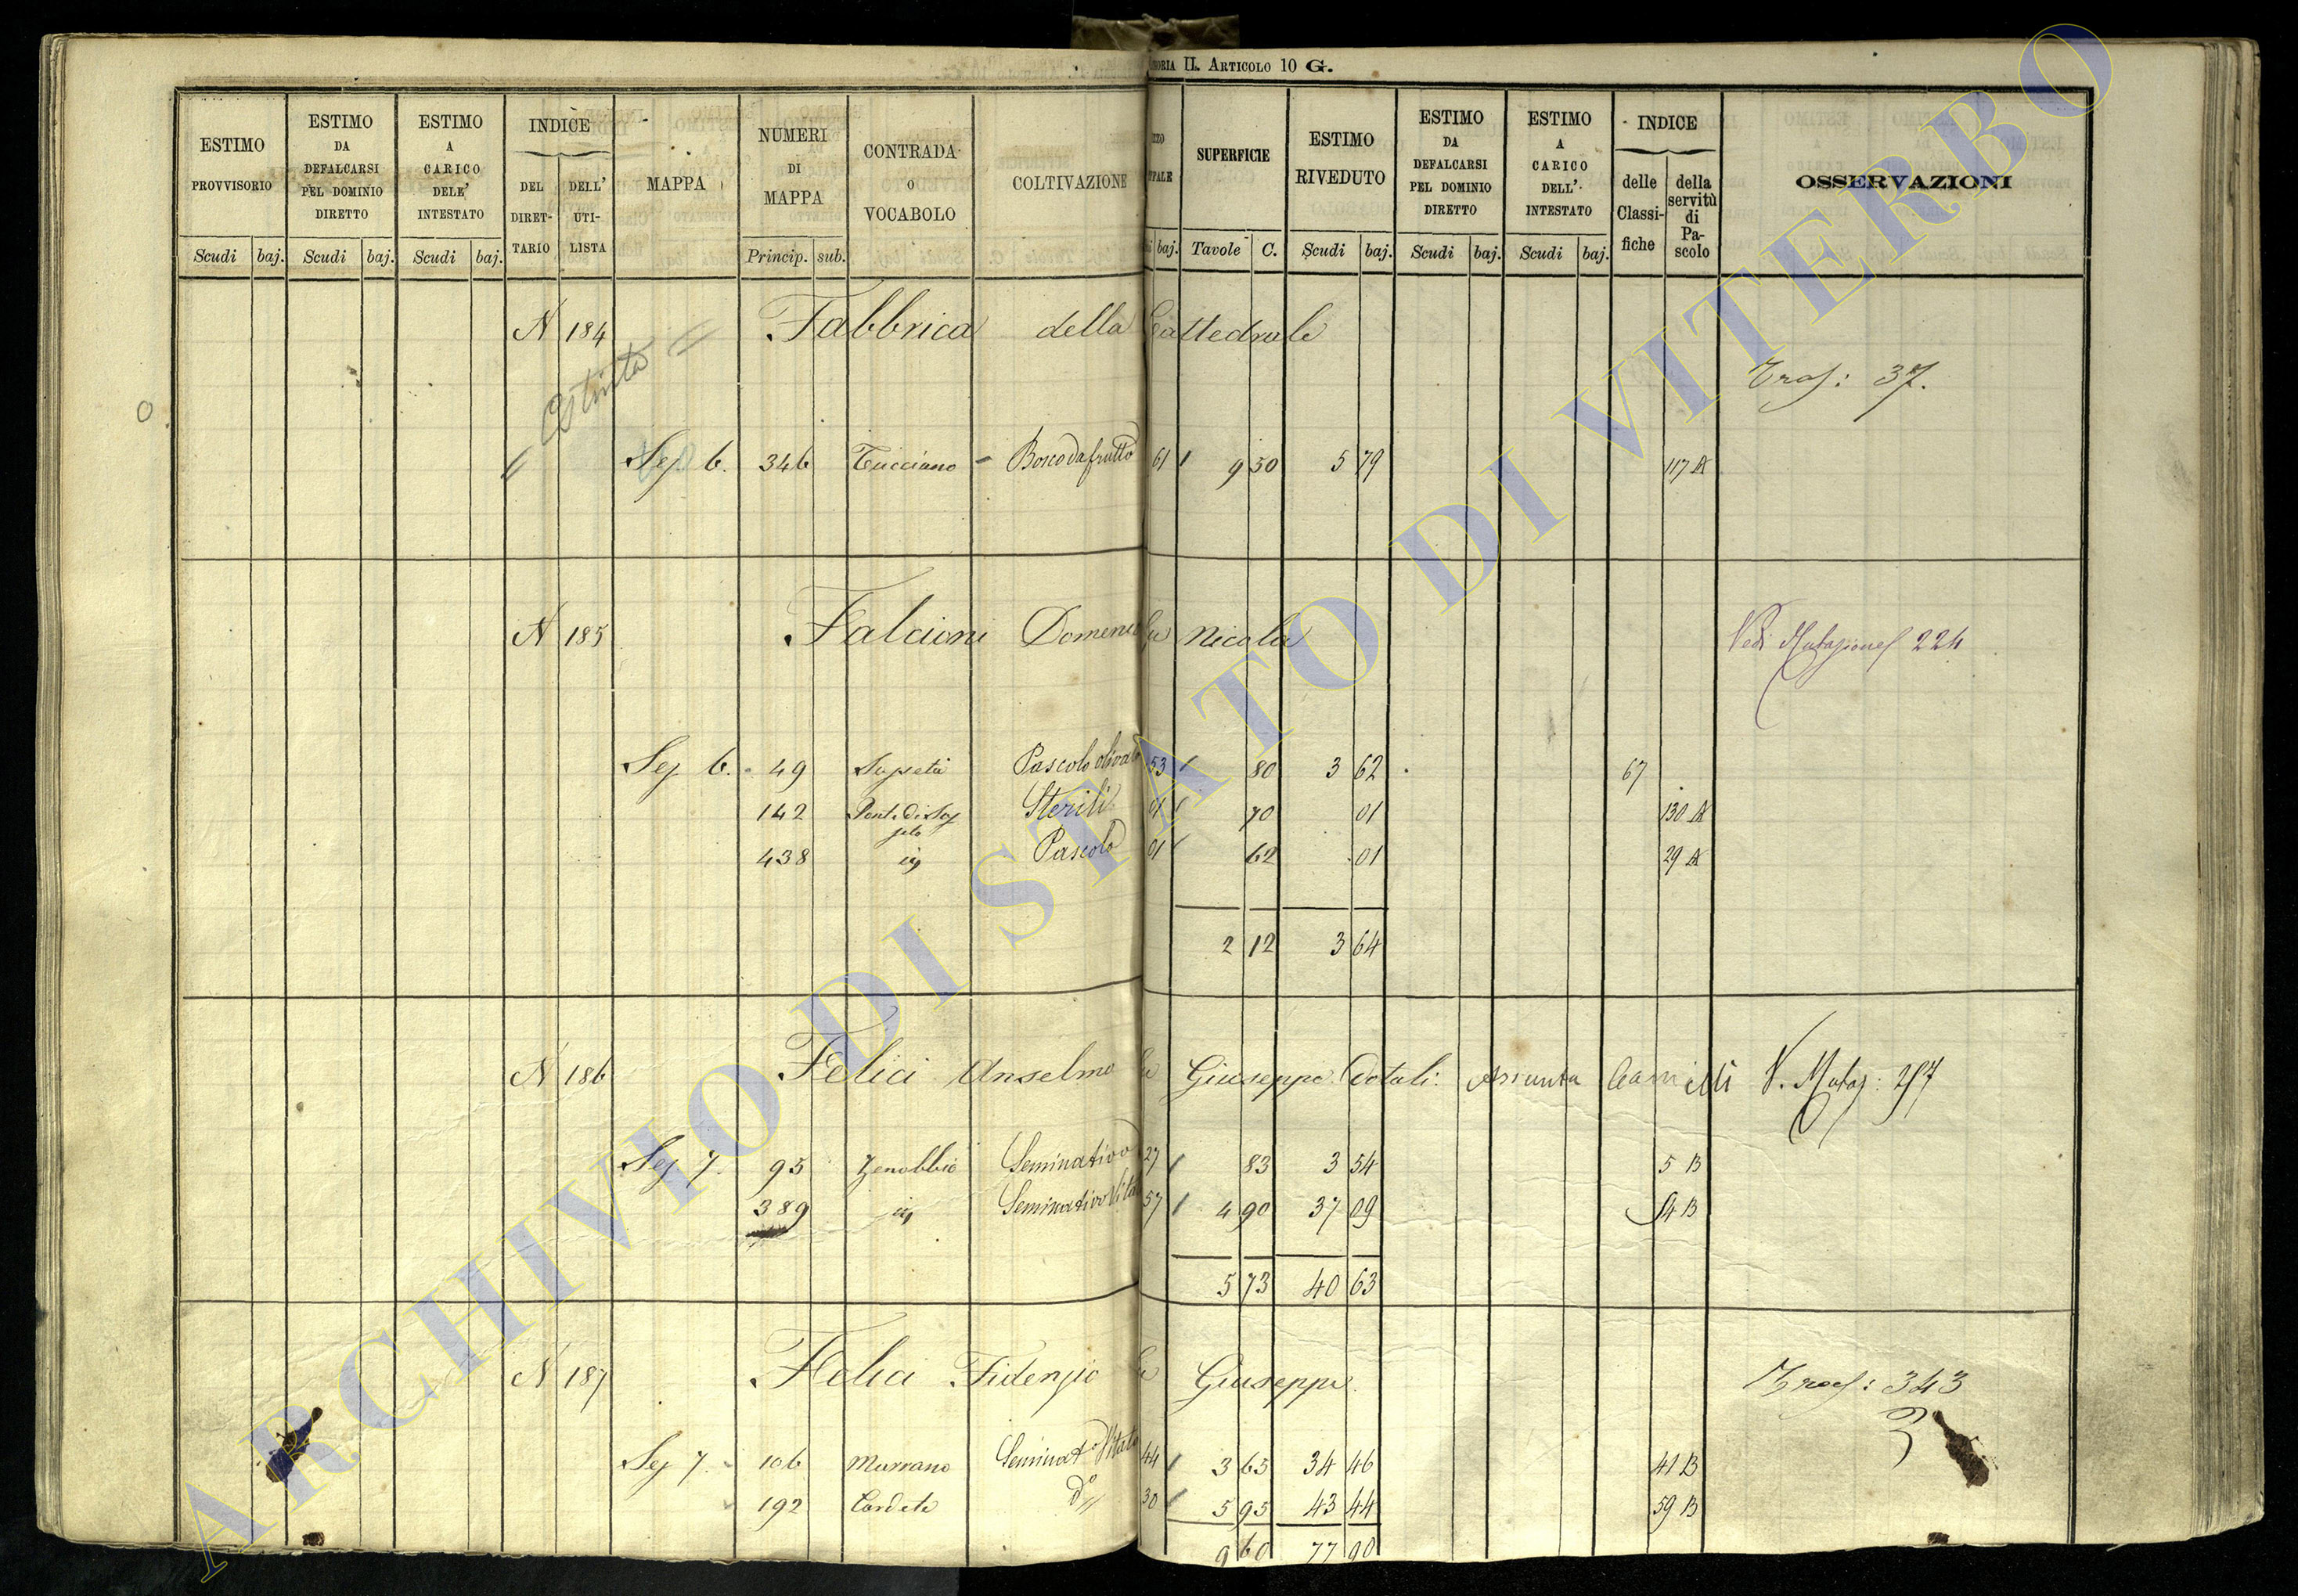 ORIA II. ARTICOLO 10 G.
ESTIMO PROVVISORIO
ESTIMO DA DEFALCARSI PEL DOMINIO DIRETTO
ESTIMO A CARICO DELL' INTESTATO
INDICE
DEL DIRETTARIO
DELL' UTILISTA
MAPPA
NUMERI DI MAPPA
CONTRADA O VOCABOLO
COLTIVAZIONE
SUPERFICIE
ESTIMO RIVEDUTO
ESTIMO DA DEFALCARSI PEL DOMINIO DIRETTO
ESTIMO A CARICO DELL' INTESTATO
INDICE
delle Classifiche
della servitù di Pascolo
OSSERVAZIONI
Scudi baj. Scudi baj. Scudi baj. Princip. sub. baj. Tavole C. Scudi baj. Scudi baj. Scudi baj.
N 184 Fabbrica della Cattedrale
Tras: 37.
estinta
Sez 6. 346 Tucciano Bosco da frutto 61 9 50 5 79 117 A
N 185 Falcioni Domenico Nicola
Vedi Mutazione 224
Sez 6. 49 Pascolo olivato 53 80 3 62 67
142 Sterile 01 70 01 130 A
438 Pascolo 01 62 01 29 A
2 12 3 64
N 186 Felici Anselmo Giuseppe Dotali: Assunta Camilli
Sez 7. 95 Zenobbio Seminativo 27 83 3 54 5 B
389 Seminativo Vitato 57 4 90 37 09 B
5 73 40 63
N 187 Felici Fidenzio Giuseppe
Tras: 343
Sez 7. 106 Murrano Seminat Vitato 44 3 65 34 46 41 B
192 d° 30 5 95 43 44 59 B
9 60 77 90
ARCHIVIO DI STATO DI VITERBO